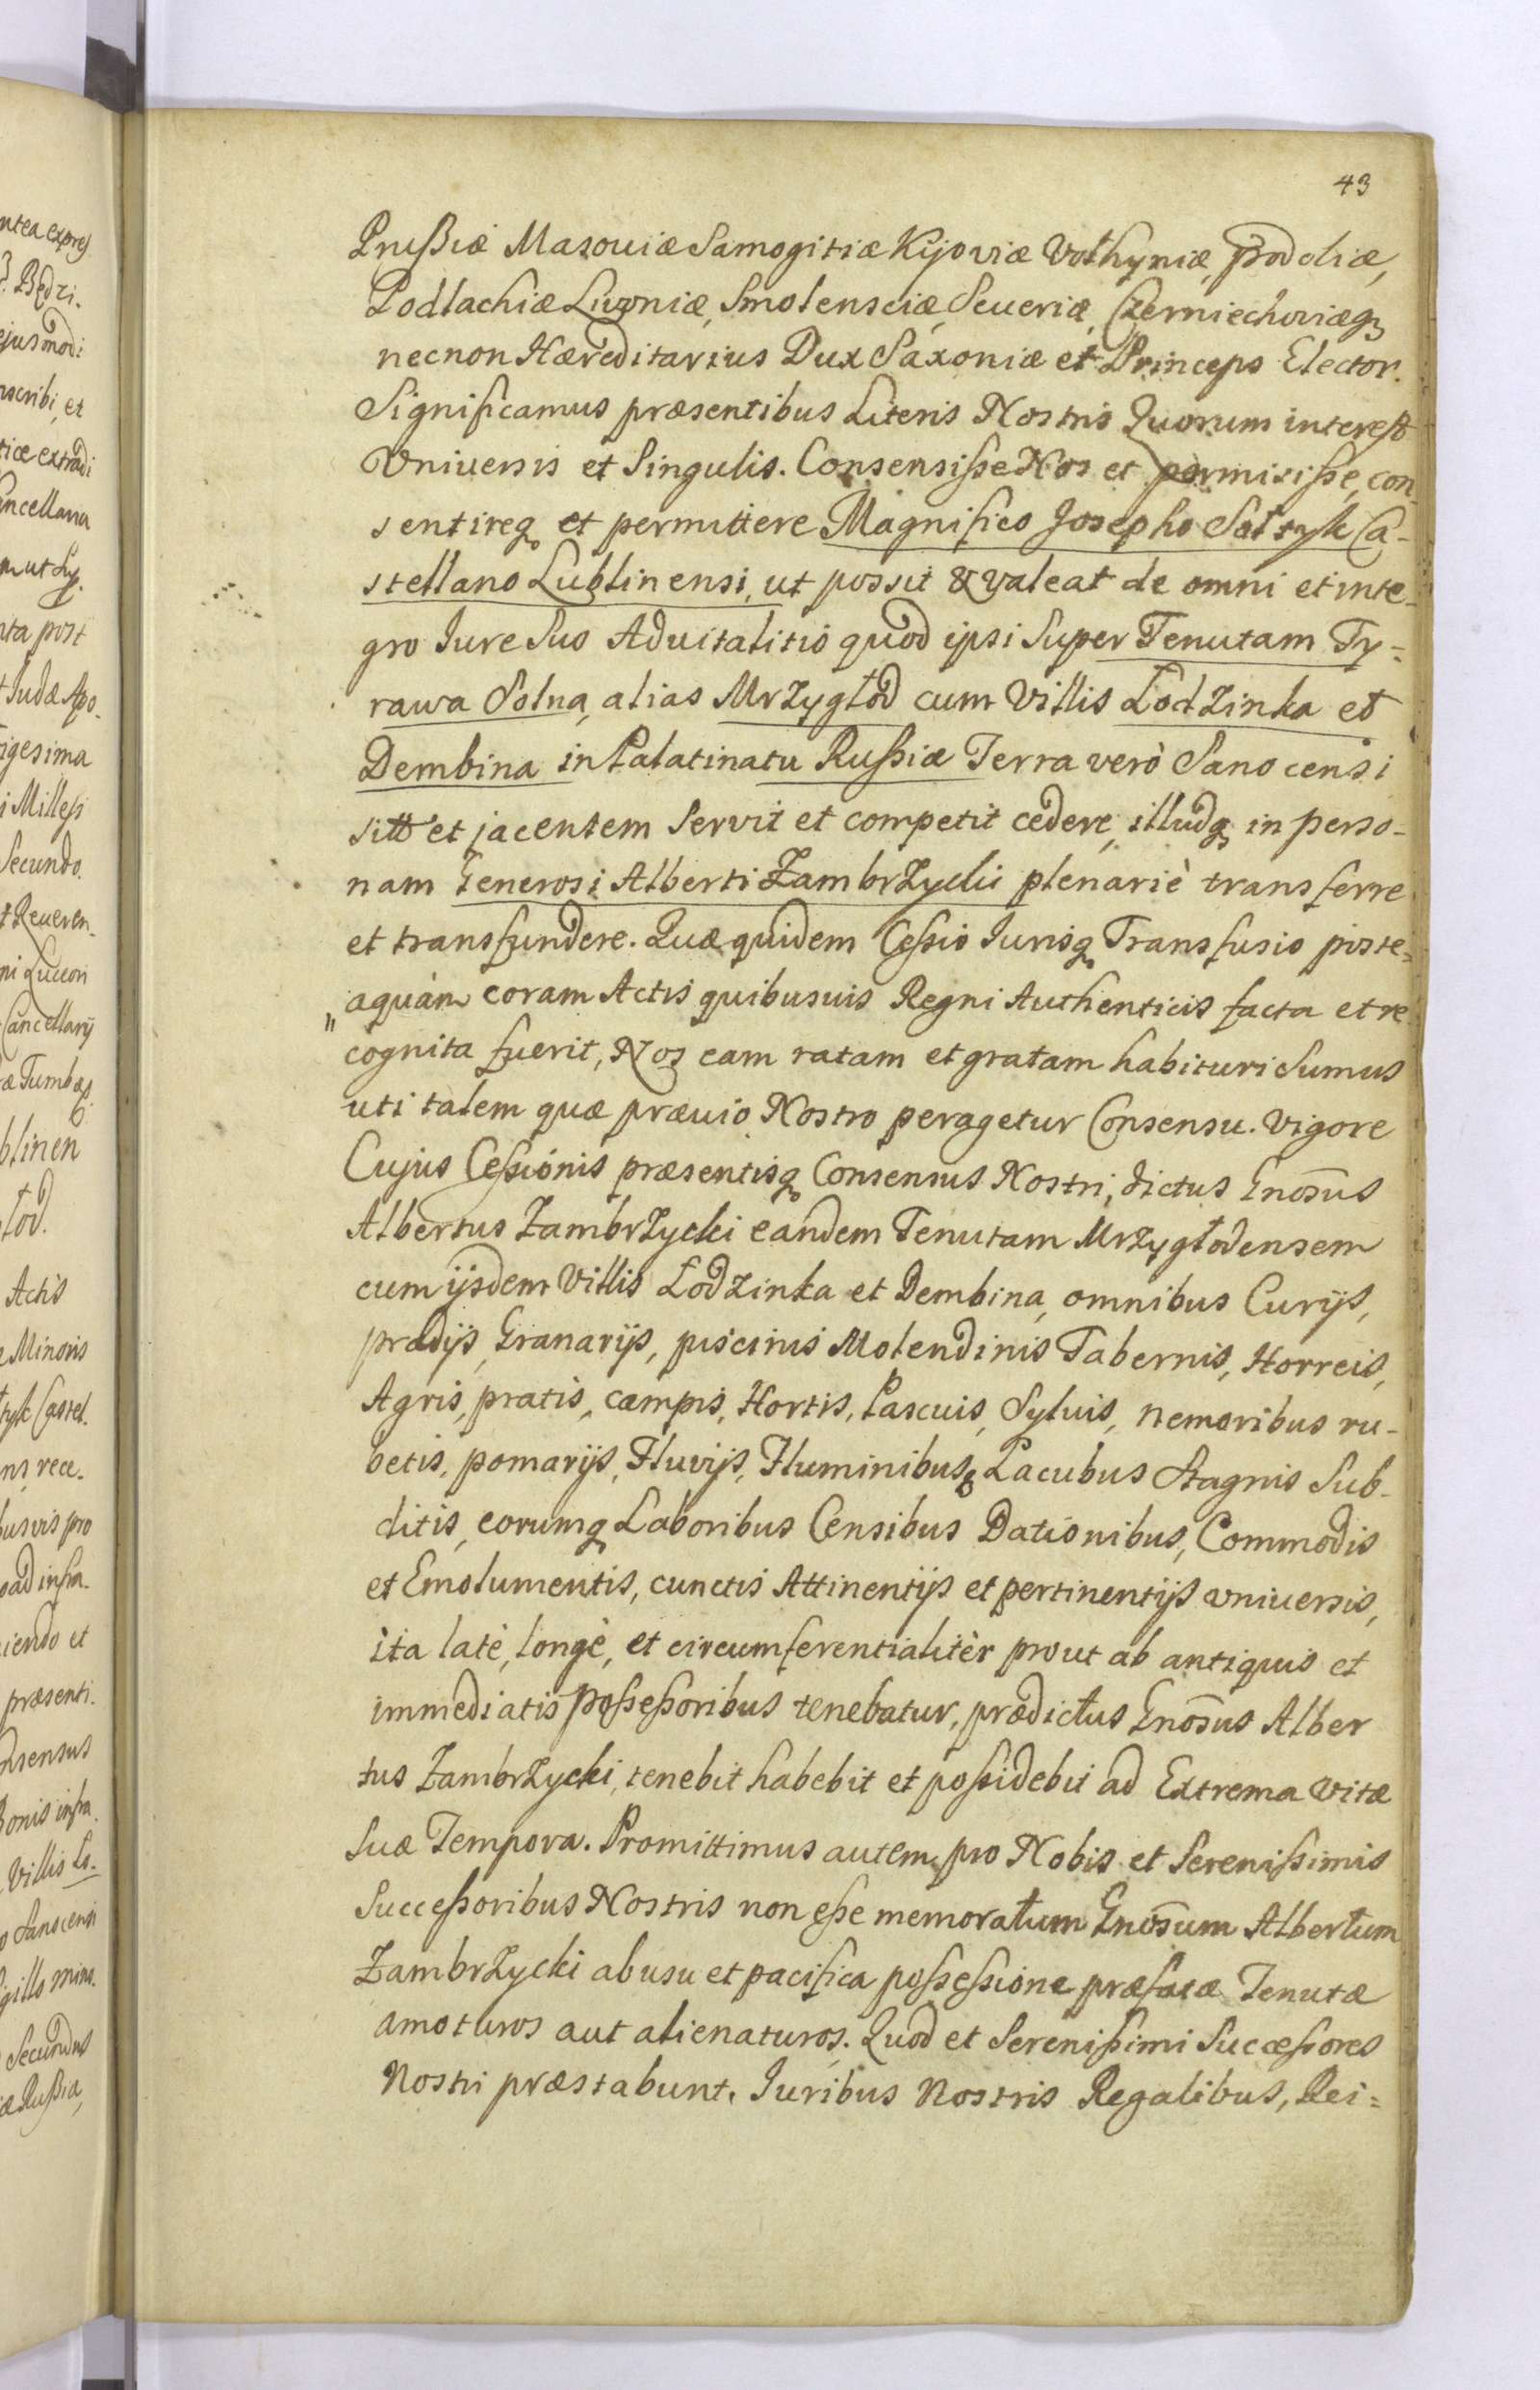 43
ntea expres
? Będzi.
ejusmodi
nscribi, et
ticæ extradi
Cancellaria
nta post
t Judæ Apo-
igesima
i Millesi
Secundo.
t Reueren.
ni Luceori
Cancellarij
blinen
łod.
Actis
Minoris
tyk Castel.
ns, rece.
busvis pro
oad infra.
iendo et
præsenti.
onsensus
Bonis infra.
Villis Lo-
o Sanocensi
Sigillo mino.
Secundus
æ Rußia,
Prußiæ Masouiæ Samogitiæ Kijoviæ Vołhyniæ, Podoliæ,
Podlachiæ Livoniæ, Smolensciæ, Seueriæ, Czerniechoviæq3
necnon Hæreditarius Dux Saxoniæ et Princeps Elector.
Significamus præsentibus Literis Nostris Quorum interest
Vniuersis et Singulis. Consensiße Nos et permisiße, con-
sentireq3 et permittere Magnifico Josepho Sołtyk Ca-
stellano Lublinensi, ut possit & valeat de omni et inte-
gro Iure Suo Aduitalitio quod ipsi Super Tenutam Ty-
rawa Solna, alias Mrzygłod cum Villis Łodzinka et
Dembina in Palatinatu Rußiæ Terra verò Sanocensi
sitt et jacentem servit et competit cedere, illudq3 in perso-
nam Generosi Alberti Zambrzycki plenariè transferre
et transfundere. Quæ quidem Ceßio Iurisq3 Transfusio poste-
aquàm coram Actis quibusuis Regni Authenticis facta et re
" cognita fuerit, Nos eam ratam et gratam habituri Sumus
uti talem quæ præuio Nostro peragetur Consensu. Vigore
Cujus Ceßionis præsentisq3 Consensus Nostri, dictus Gnosus
Albertus Zambrzycki eandem Tenutam Mrzygłodensem
cum ijsdem Villis Łodzinka et Dembina, omnibus Curijs,
prædijs, Granarijs, piscinis Molendinis Tabernis, Horreis,
Agris, pratis, campis, Hortis, Pascuis, Syluis, nemoribus ru-
betis, pomarijs, Fluvijs, Fluminibus, Lacubus Stagnis Sub-
ditis, eorumq3 Laboribus Censibus Dationibus, Commodis
et Emolumentis, cunctis Attinentijs et pertinentijs vniuersis,
ita latè, longè, et circumferentialitèr prout ab antiquis et
immediatis poßeßoribus tenebatur, prædictus Gnosus Alber
tus Zambrzycki, tenebit habebit et poßidebit ad Extrema vitæ
Suæ Tempora. Promittimus autem pro Nobis et Serenißimis
Succeßoribus Nostris non eße memoratum Gnosum Albertum
Zambrzycki ab usu et pacifica poßeßione præfatæ Tenutæ
amoturos aut alienaturos. Quod et Serenißimi Succeßores
Nostri præstabunt. Iuribus Nostris Regalibus, Rei-